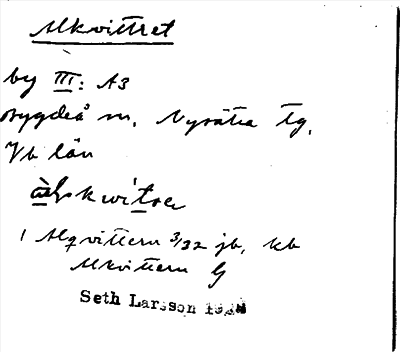 Alkvittret
by III: A3
Bygdeå sn. Nysätra tg.
Vb län
àlskwìtrə
1 Alqvittern 3/32 jb, kb
Alkvittern G
Seth Larsson